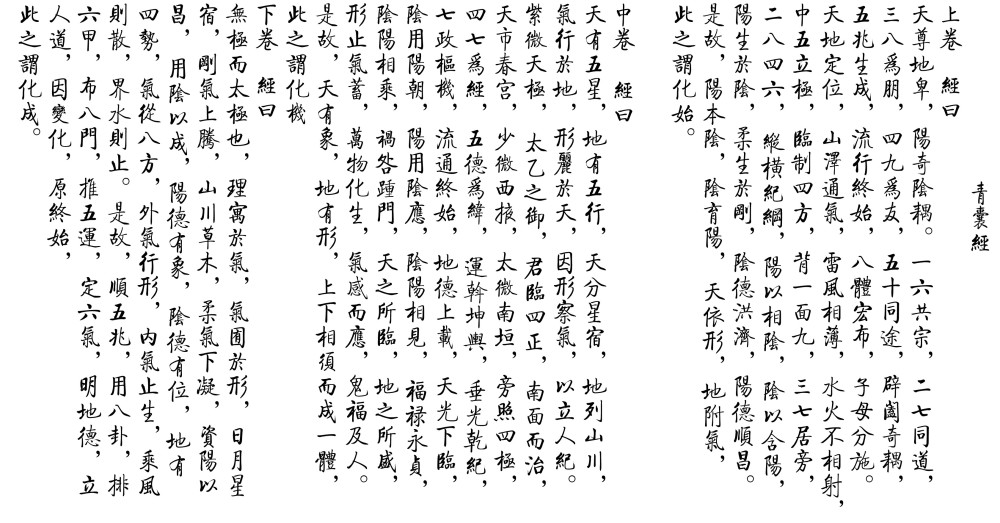 青囊經
上卷 經曰
天尊地卑，陽奇陰耦。一六共宗，二七同道，
三八為朋，四九為友，五十同途，闢闔奇耦，
五兆生成，流行終始，八體宏布，子母分施。
天地定位，山澤通氣，雷風相薄，水火不相射，
中五立極，臨制四方，背一面九，三七居旁，
二八四六，縱橫紀綱，陽以相陰，陰以含陽，
陽生於陰，柔生於剛，陰德洪濟，陽德順昌。
是故，陽本陰，陰育陽，天依形，地附氣，
此之謂化始。
中卷 經曰
天有五星，地有五行，天分星宿，地列山川，
氣行於地，形麗於天，因形察氣，以立人紀。
紫微天極，太乙之御，君臨四正，南面而治，
天市春宮，少微西掖，太微南垣，旁照四極，
四七為經，五德為緯，運斡坤輿，垂光乾紀，
七政樞機，流通終始，地德上載，天光下臨，
陰用陽朝，陽用陰應，陰陽相見，福祿永貞，
陰陽相乘，禍咎踵門，天之所臨，地之所盛，
形止氣蓄，萬物化生，氣感而應，鬼福及人。
是故，天有象，地有形，上下相須而成一體，
此之謂化機
下卷 經曰
無極而太極也，理寓於氣，氣囿於形，日月星
宿，剛氣上騰，山川草木，柔氣下凝，資陽以
昌，用陰以成，陽德有象，陰德有位，地有
四勢，氣從八方，外氣行形，內氣止生，乘風
則散，界水則止。是故，順五兆，用八卦，排
六甲，布八門，推五運，定六氣，明地德，立
人道，因變化，原終始，
此之謂化成。